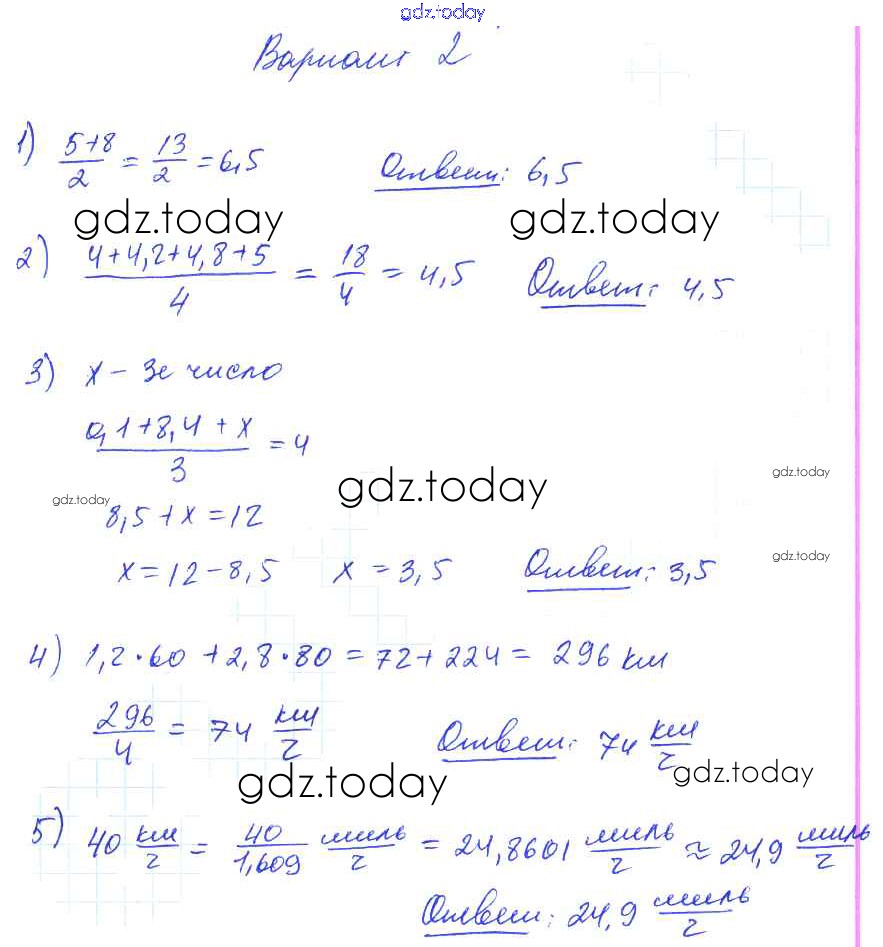 gdz.today
Вариант 2
1) (5+8)/2 = 13/2 = 6,5 Ответ: 6,5
gdz.today gdz.today
2) (4+4,2+4,8+5)/4 = 18/4 = 4,5 Ответ: 4,5
3) x – 3е число
(0,1+8,4+x)/3 = 4
gdz.today gdz.today gdz.today
8,5+x=12
x=12-8,5 x=3,5 Ответ: 3,5
gdz.today
4) 1,2·60+2,8·80=72+224= 296 км
296/4 = 74 км/г Ответ: 74 км/г
gdz.today gdz.today
5) 40 км/г = 40/1,609 миль/г = 24,8601 миль/г ≈ 24,9 миль/г
Ответ: 24,9 миль/г